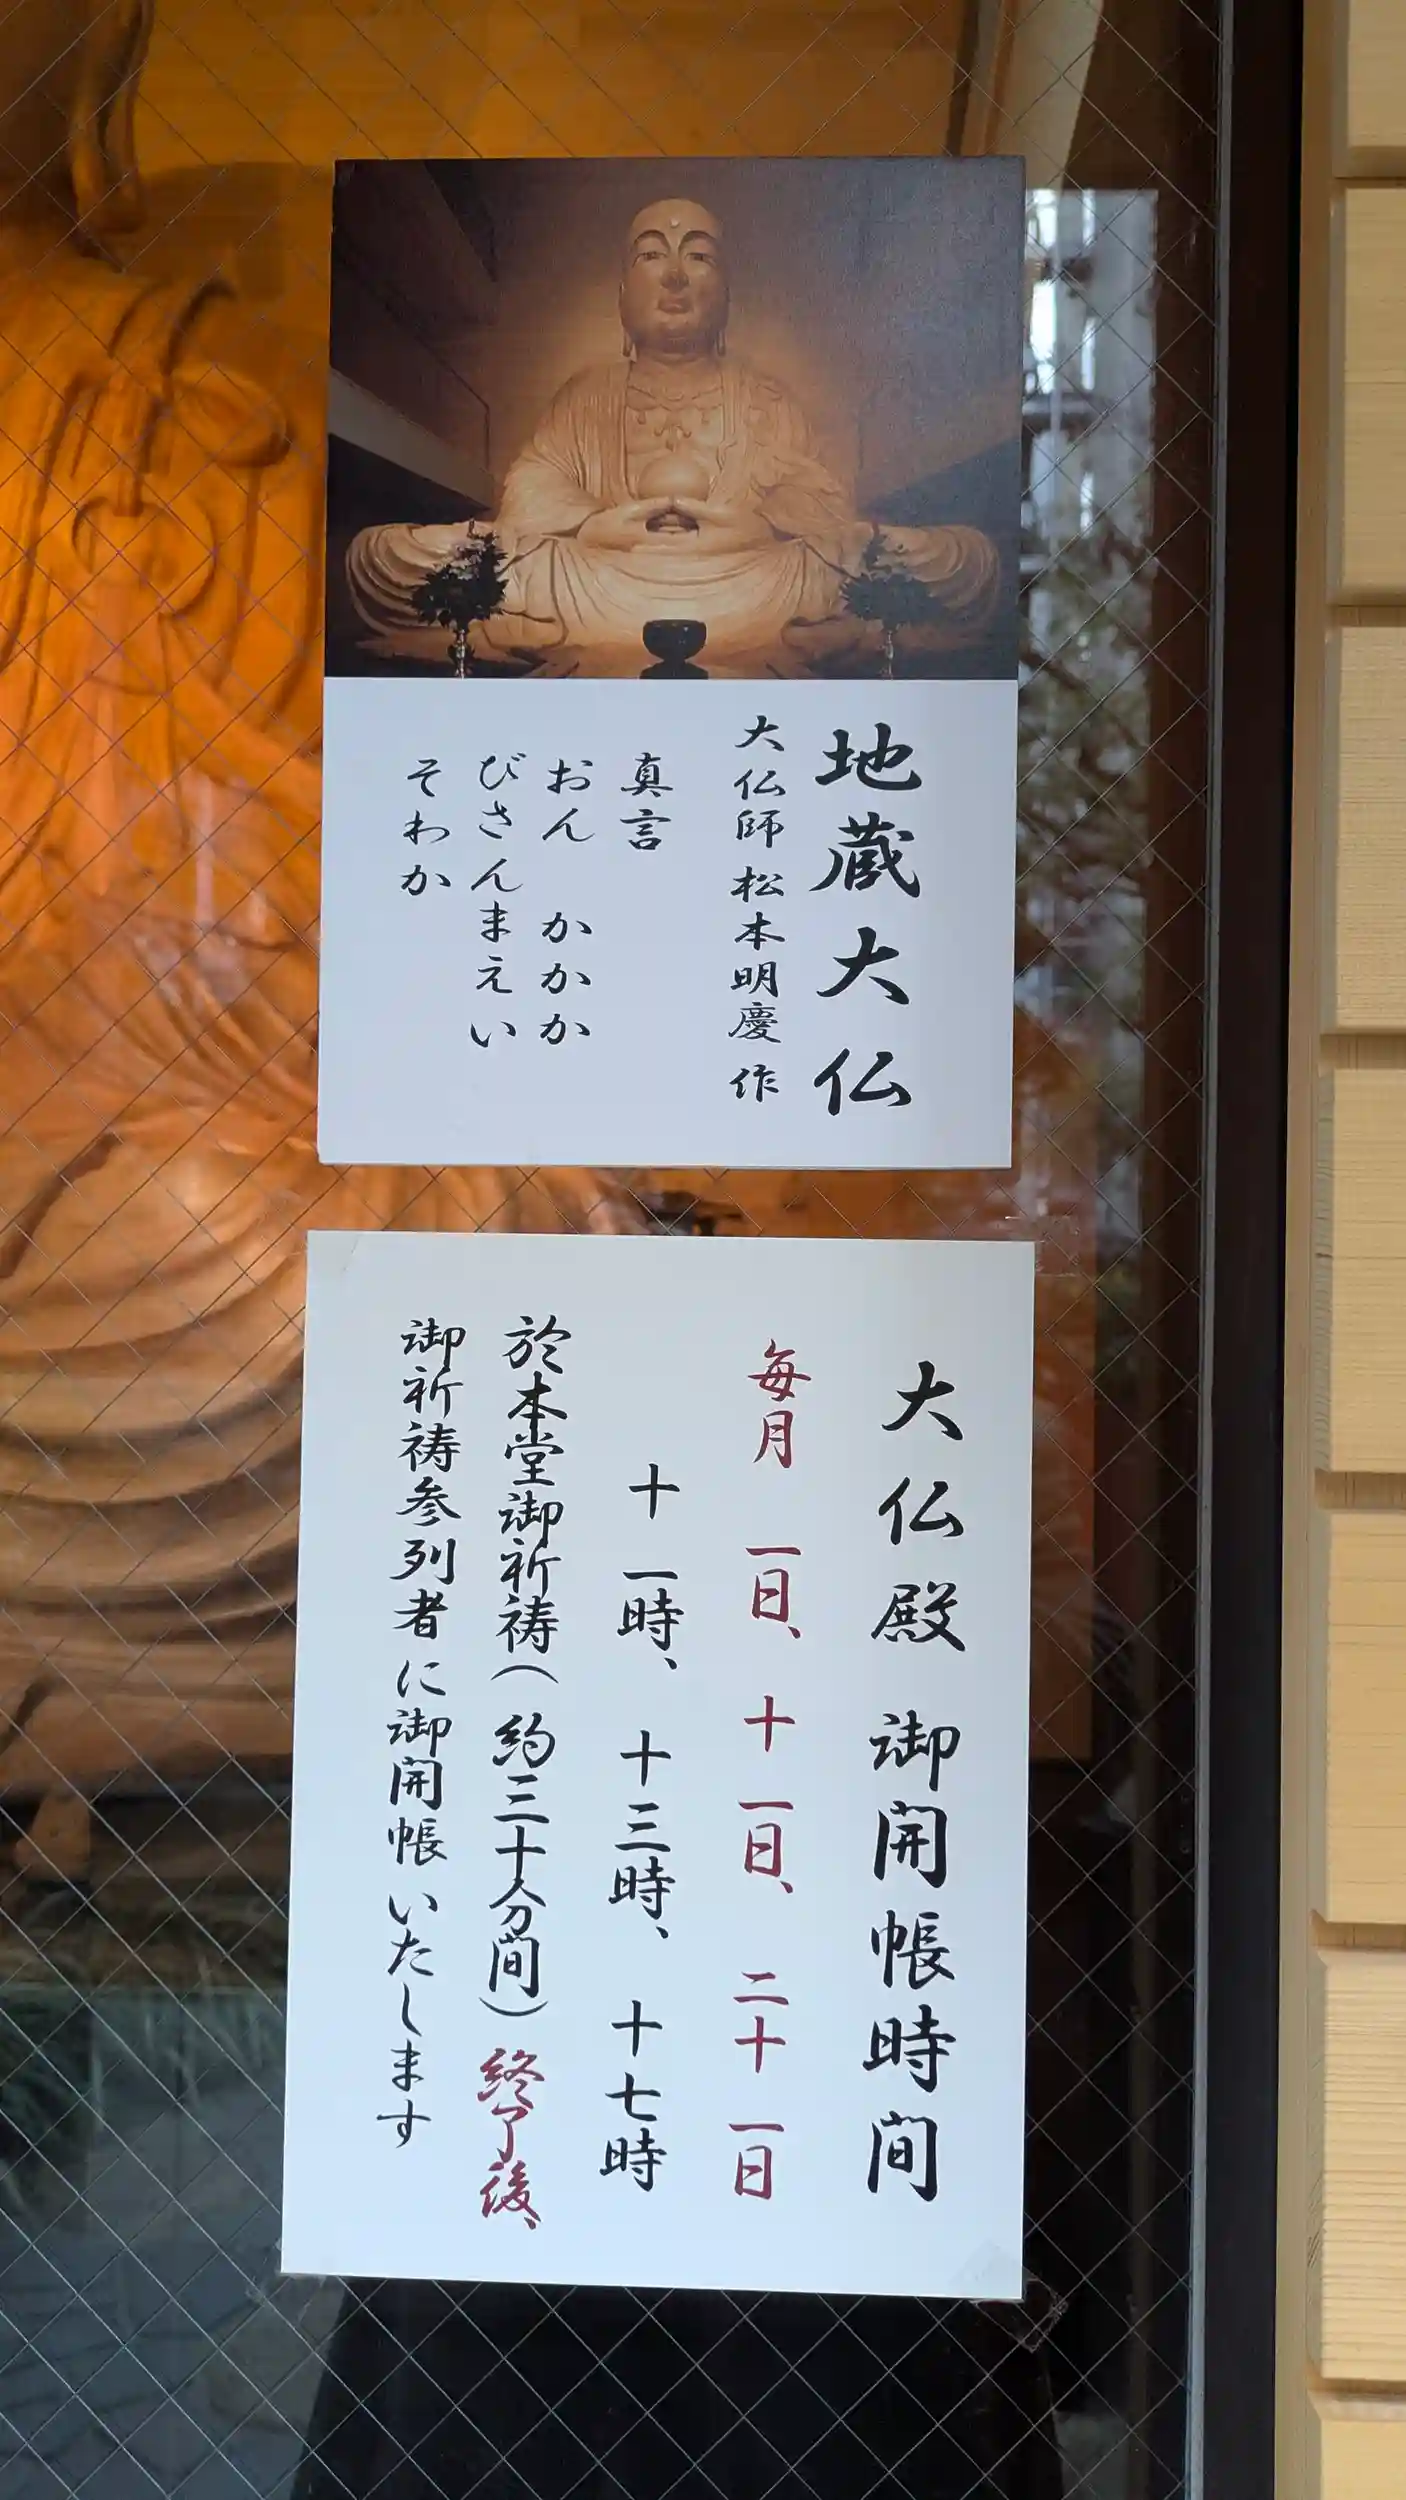 地蔵大仏
大仏師 松本明慶 作
真言
おん かかか
びさんまえい
そわか
大仏殿 御開帳時間
毎月 一日、十一日、二十一日
十一時、十三時、十七時
於本堂御祈祷(約三十分間)終了後、
御祈祷参列者に御開帳いたします